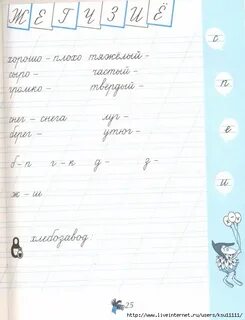 Ж Е Г Ч З И Ё
хорошо – плохо тяжёлый –
сыро – частый –
громко – твердый –
снег – снега луг –
берег – утюг –
б – п г – к д – з –
ж – ш
хлебозавод
с
п
е
и
25
http://www.liveinternet.ru/users/ksu11111/